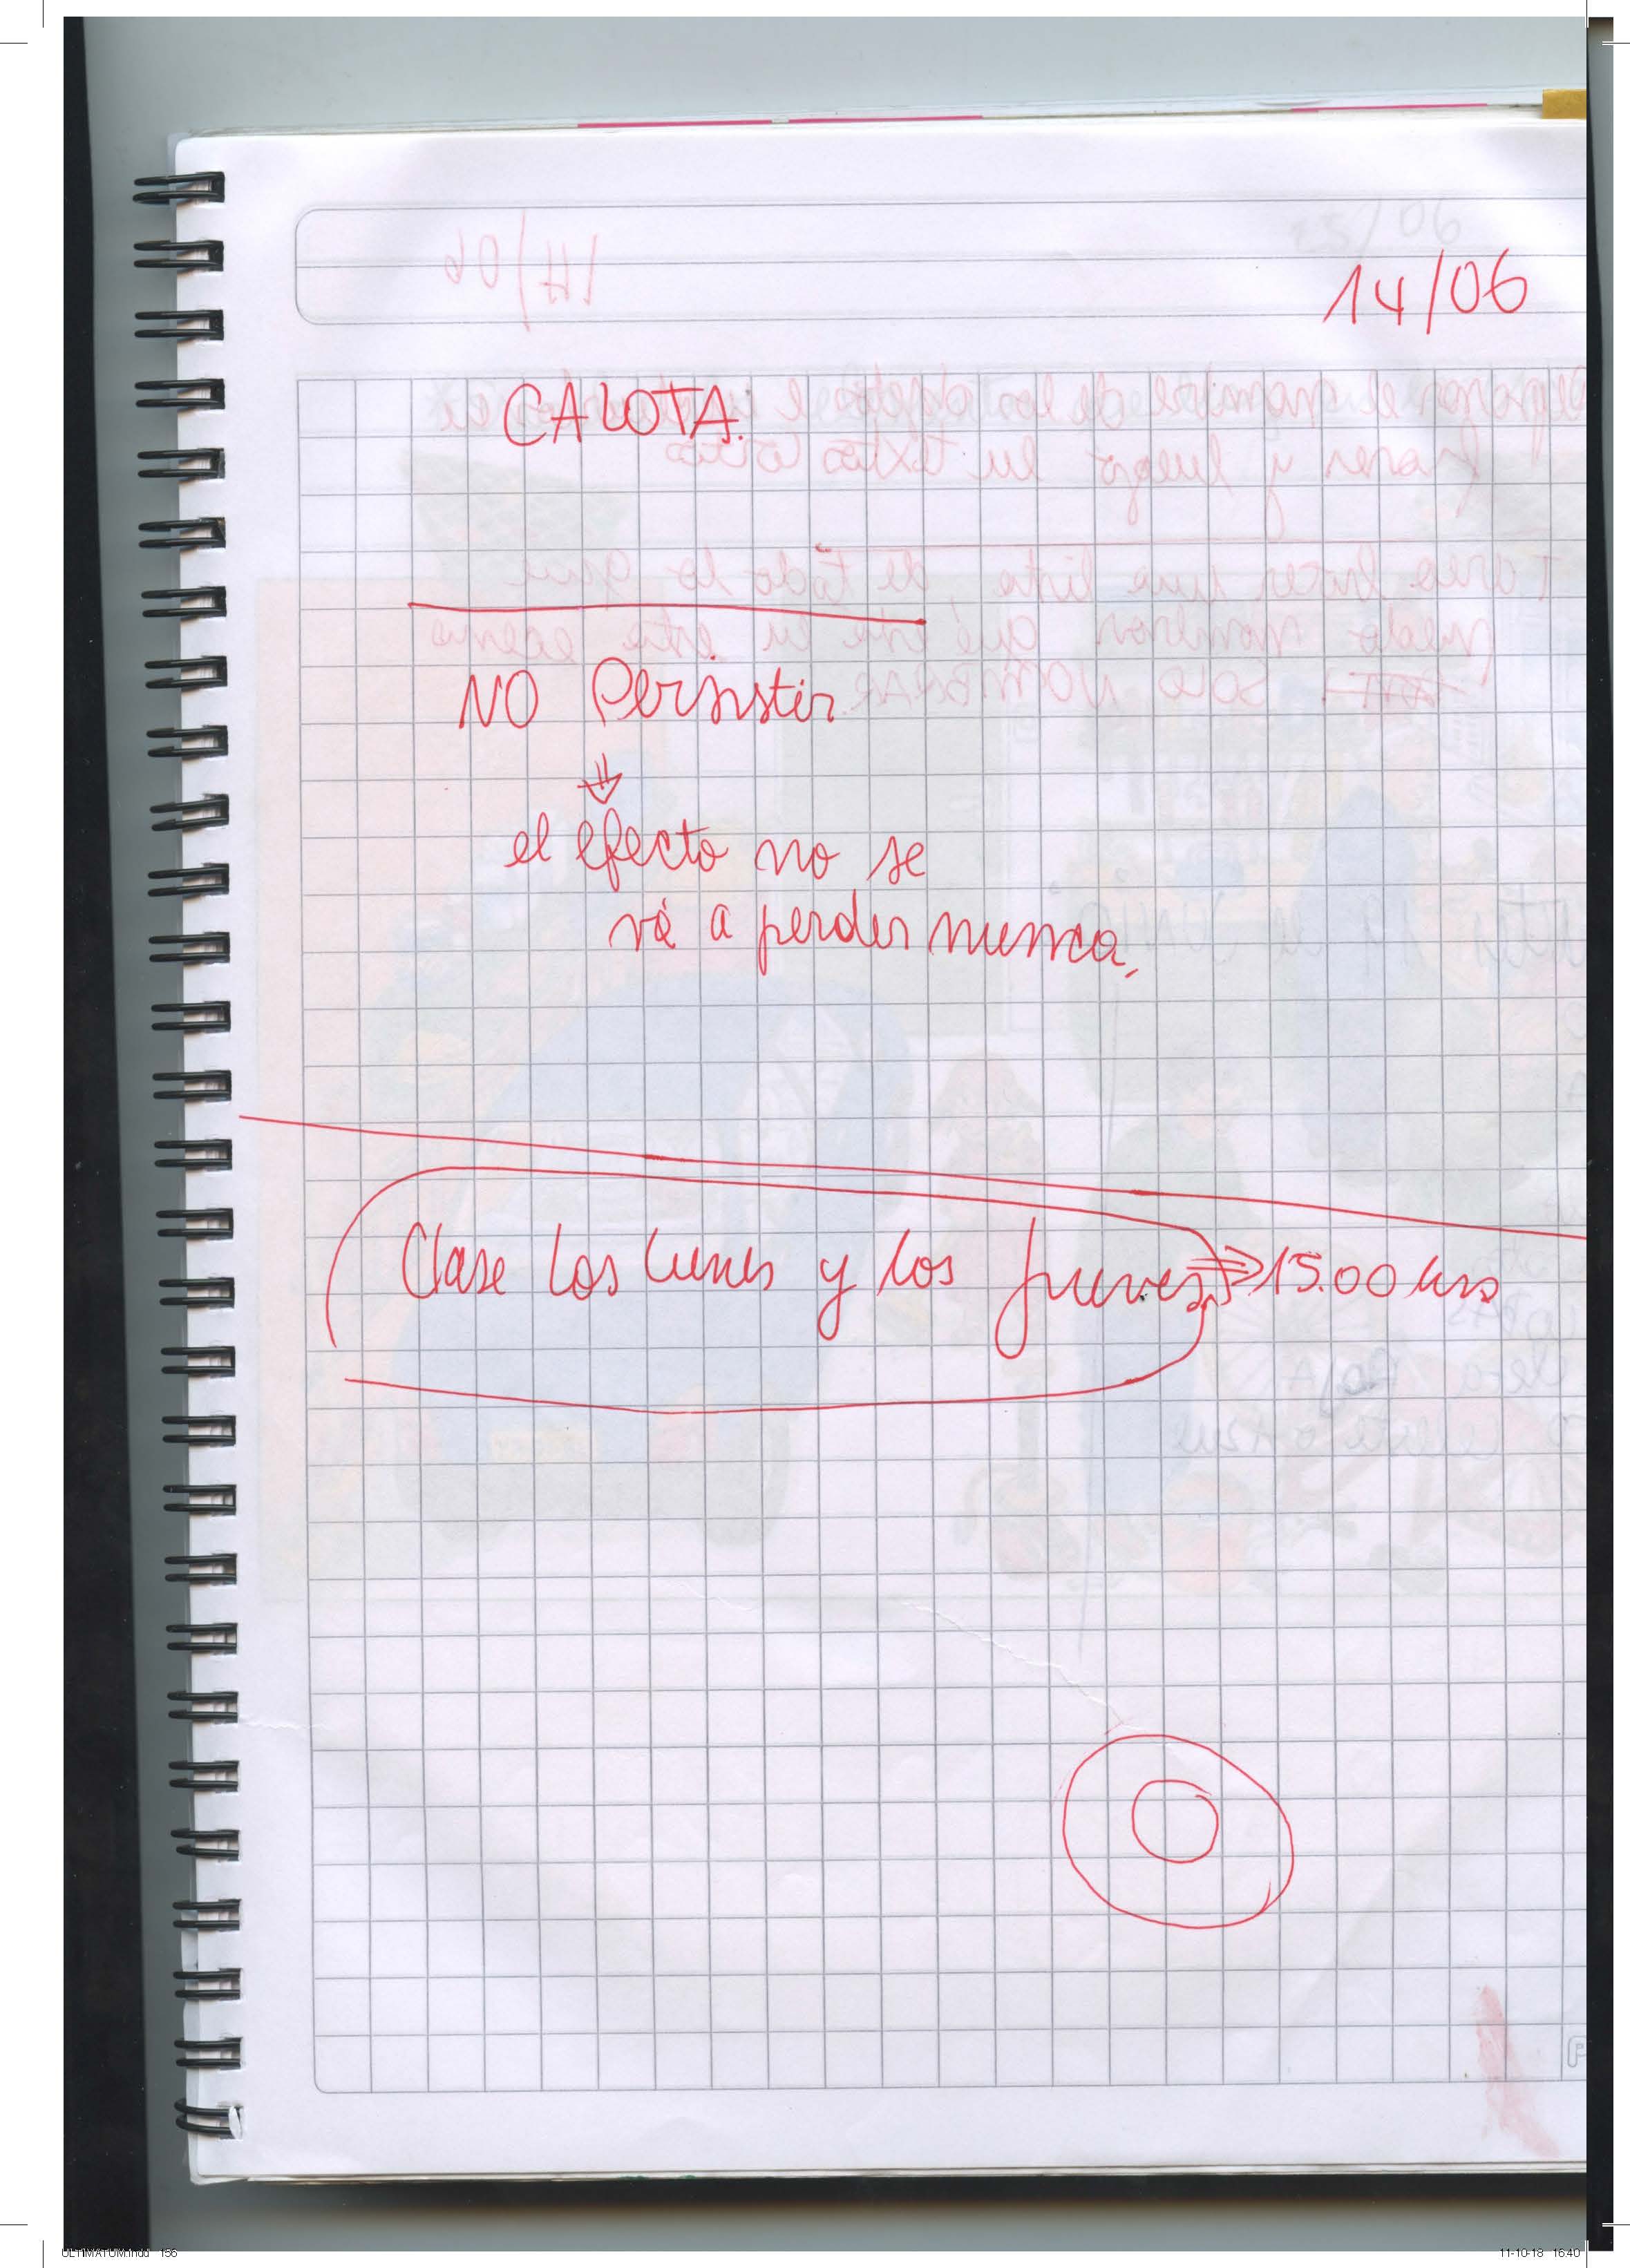 14/06
CALOTA.
NO Persistir
el efecto no se
vá a perder nunca.
Clase los lunes y los jueves, => 15.00 hrs
ULTIMATUM.indd 156
11-10-18 16:40